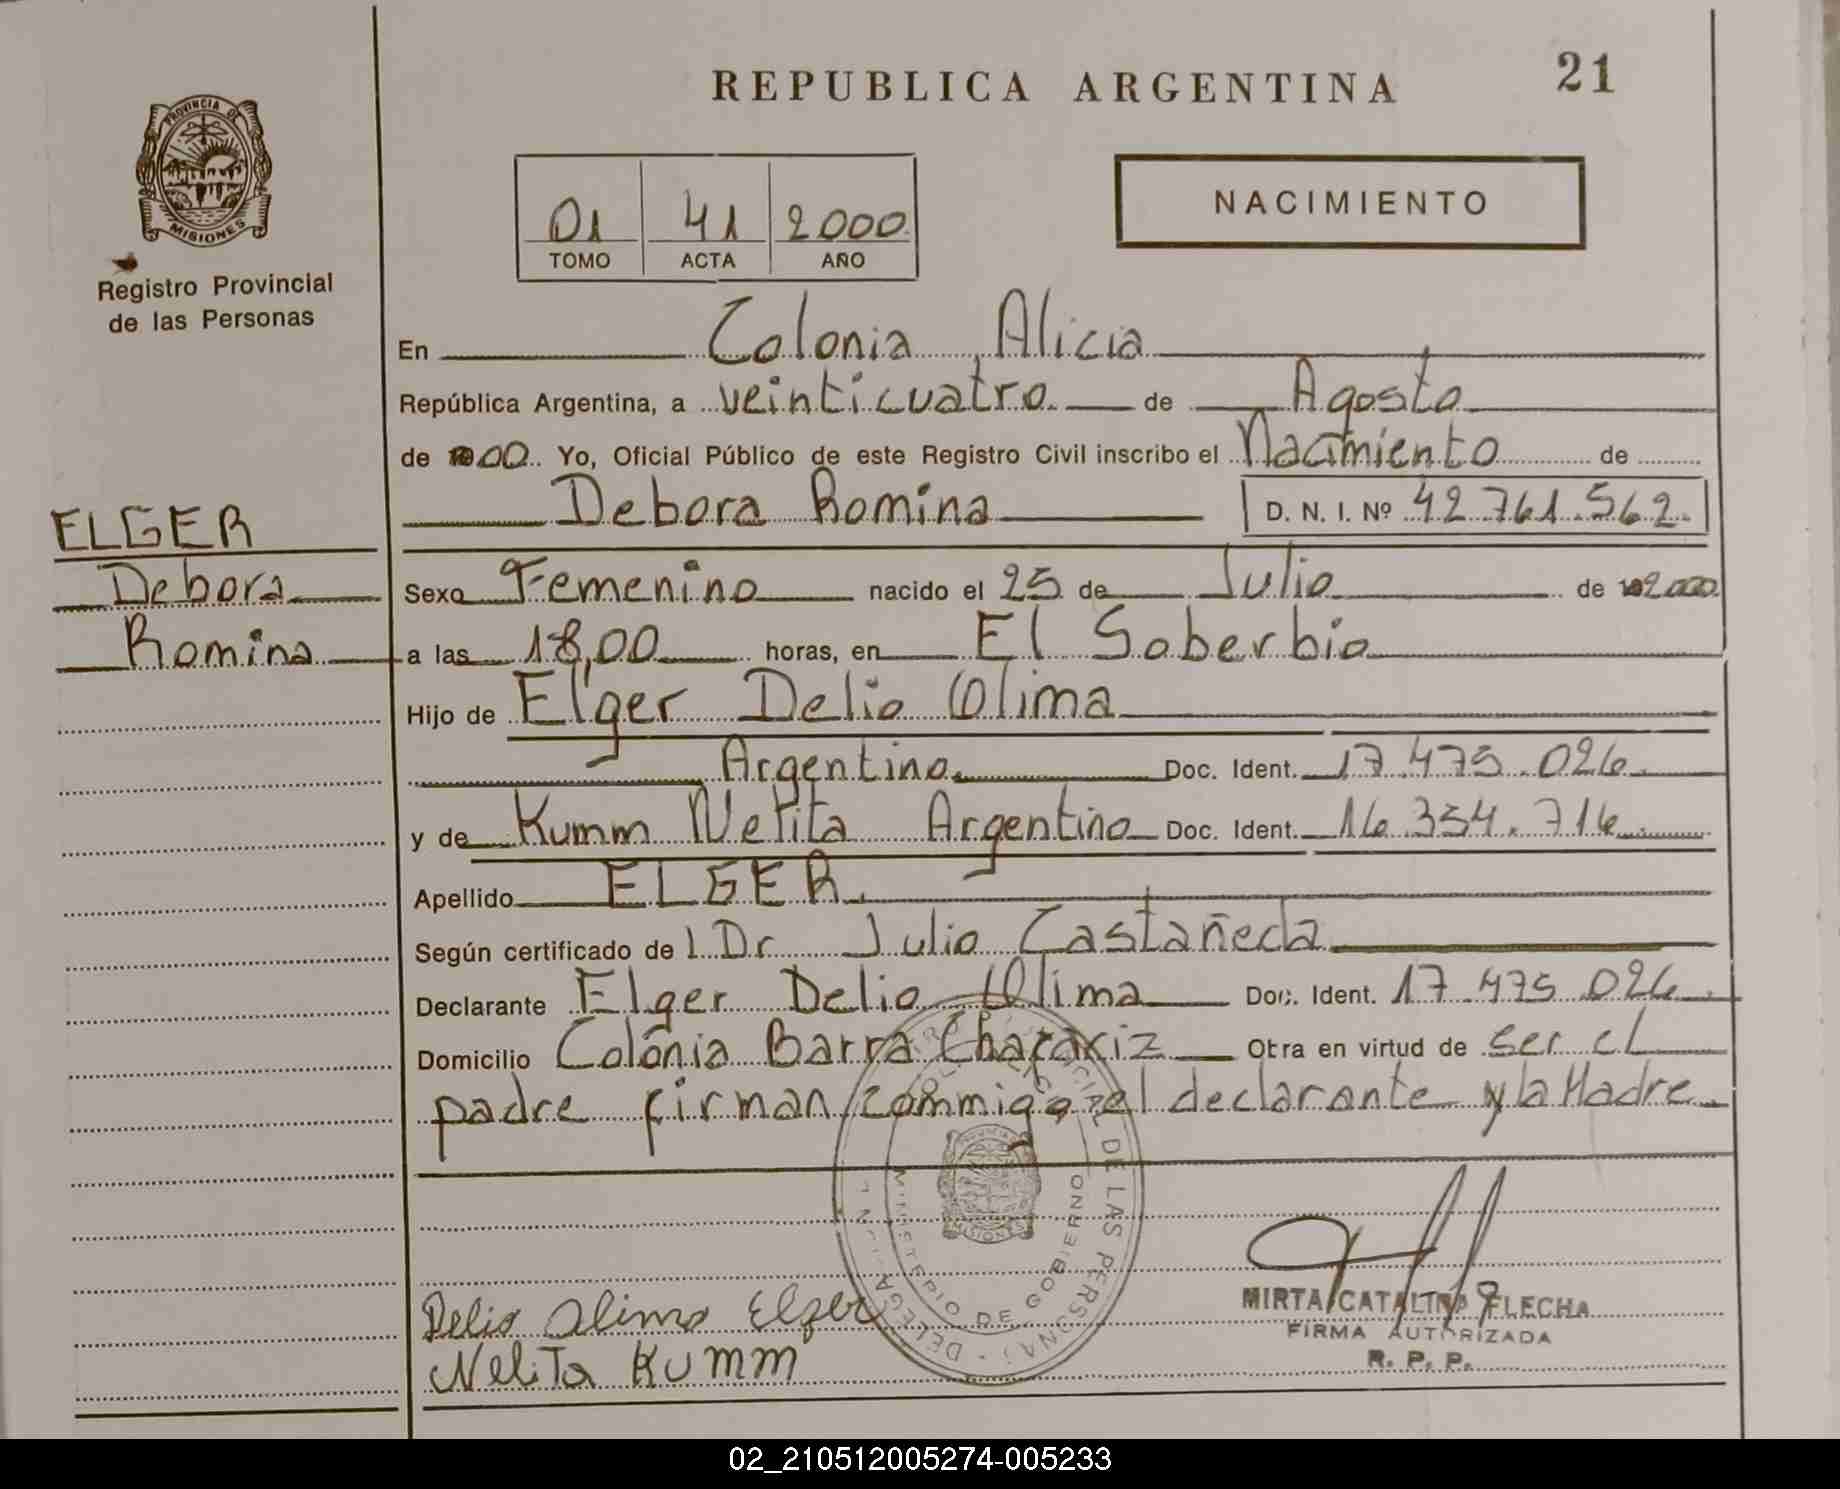 REPUBLICA ARGENTINA
21
PROVINCIA DE
MISIONES
Registro Provincial
de las Personas
01 41 2000
TOMO ACTA AÑO
NACIMIENTO
En Colonia Alicia
República Argentina, a veinticuatro de Agosto
de 2000 Yo, Oficial Público de este Registro Civil inscribo el Nacimiento de
Debora Romina D. N. I. Nº 42.761.562.
ELGER
Debora
Romina
Sexo Femenino nacido el 25 de Julio de 2000
a las 18,00 horas, en El Soberbio
Hijo de Elger Delio Olima
Argentino Doc. Ident. 17.475.026.
y de Kumm Nelita Argentino Doc. Ident. 16.354.716
Apellido ELGER.
Según certificado de l Dr. Julio Castañeda
Declarante Elger Delio Olima Doc. Ident. 17.475.026.
Domicilio Colonia Barra Chafariz Otra en virtud de ser el
padre firman commigo el declarante y la Madre.
MINISTERIO DE GOBIERNO
DE LAS PERSONAS - DELEGA
MISIONES
Delio Olimo Elger
Nelita Kumm
MIRTA CATALINA FLECHA
FIRMA AUTORIZADA
R. P. P.
02_210512005274-005233